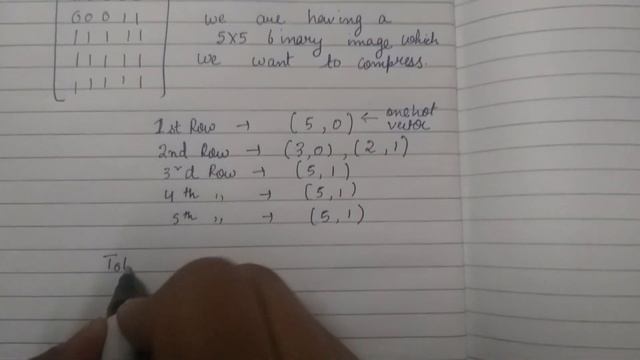 0 0 0 1 1 we are having a
1 1 1 1 1 5x5 binary image which
1 1 1 1 1 we want to compress.
1 1 1 1 1
1st Row → (5, 0) ← one hot vector
2nd Row → (3, 0), (2, 1)
3rd Row → (5, 1)
4th ,, → (5, 1)
5th ,, → (5, 1)
Tot